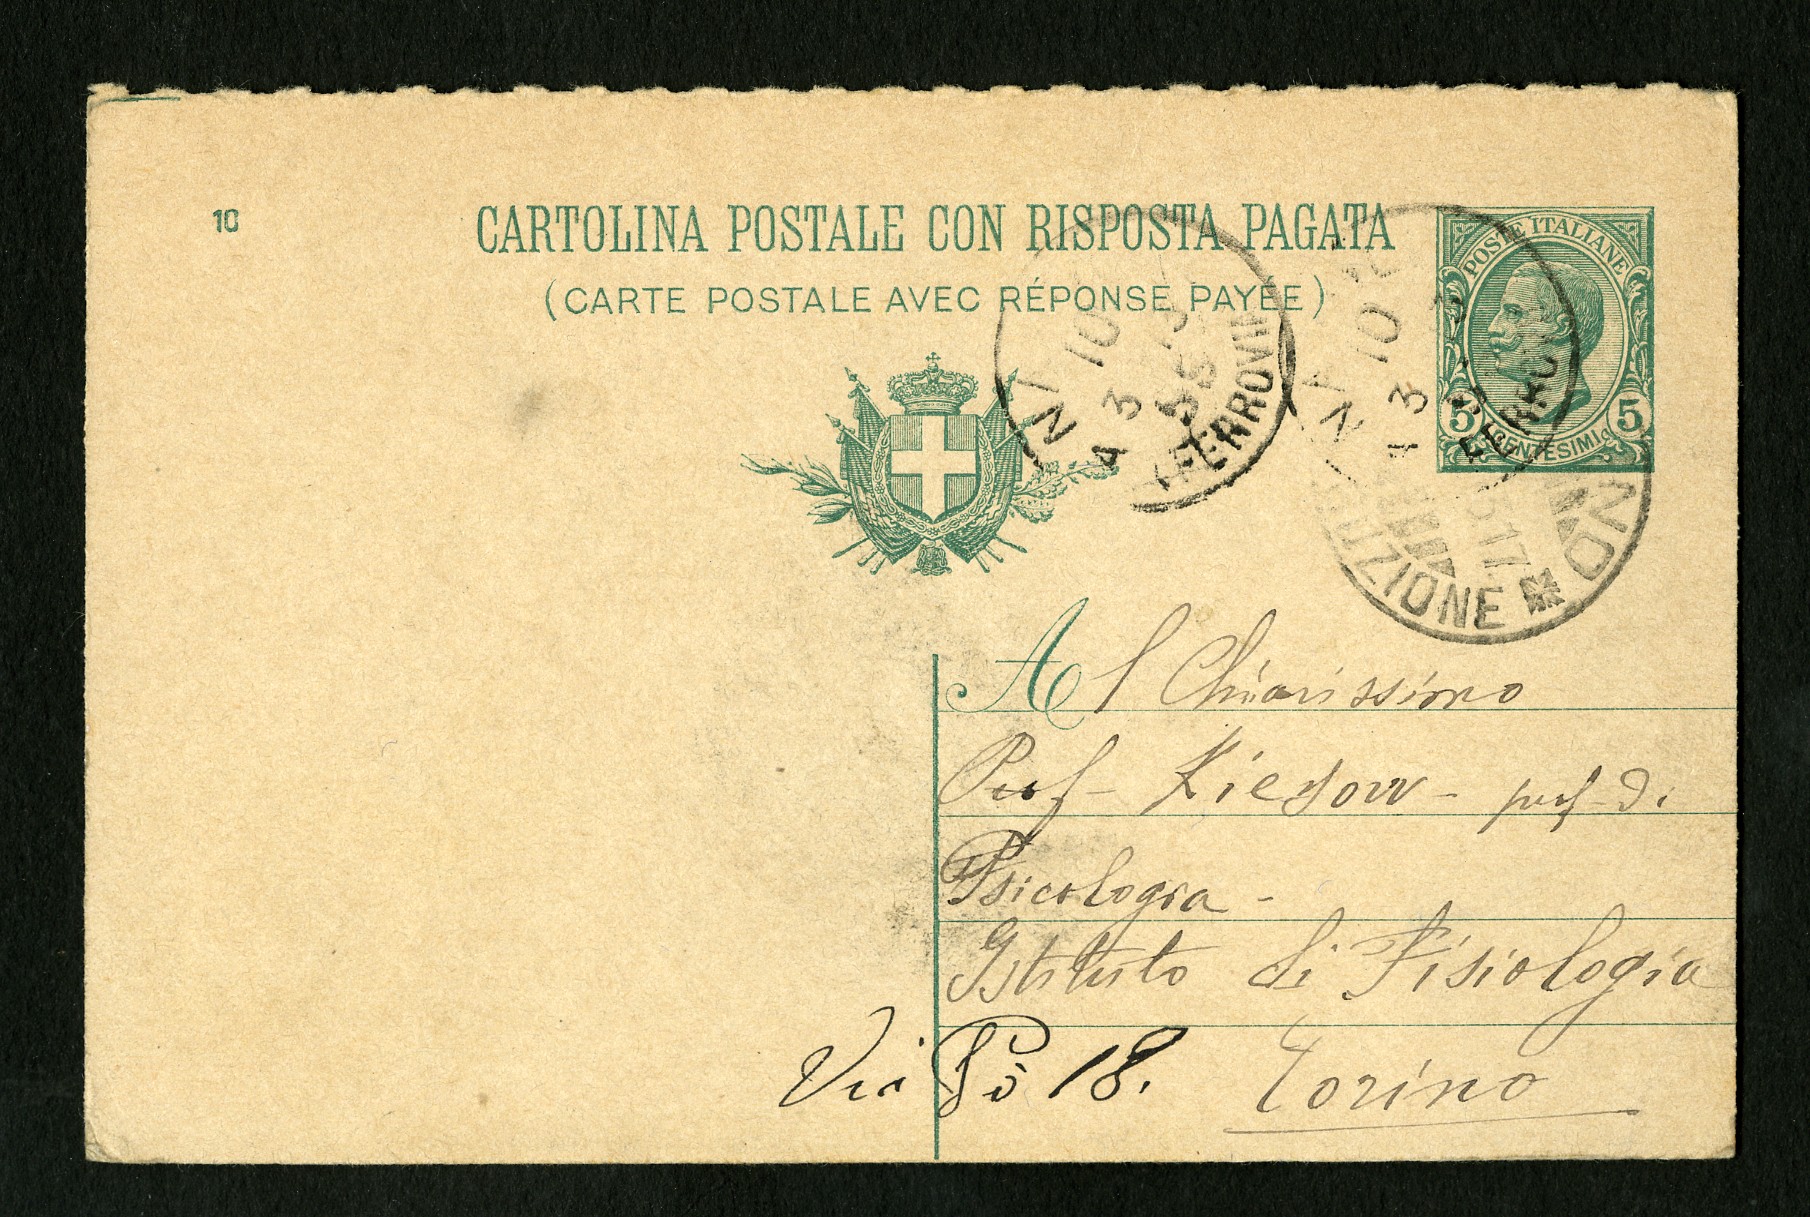 10
CARTOLINA POSTALE CON RISPOSTA PAGATA
(CARTE POSTALE AVEC RÉPONSE PAYÉE)
POSTE ITALIANE
5 5
CENTESIMI
NI 10
FERROVIA
10
FERROVIA
17
ZIONE
NO
Al Chiarissimo
Prof - Kiesow - prof - di
Psicologia -
Istituto di Fisiologia
Via Pò 18.
Torino